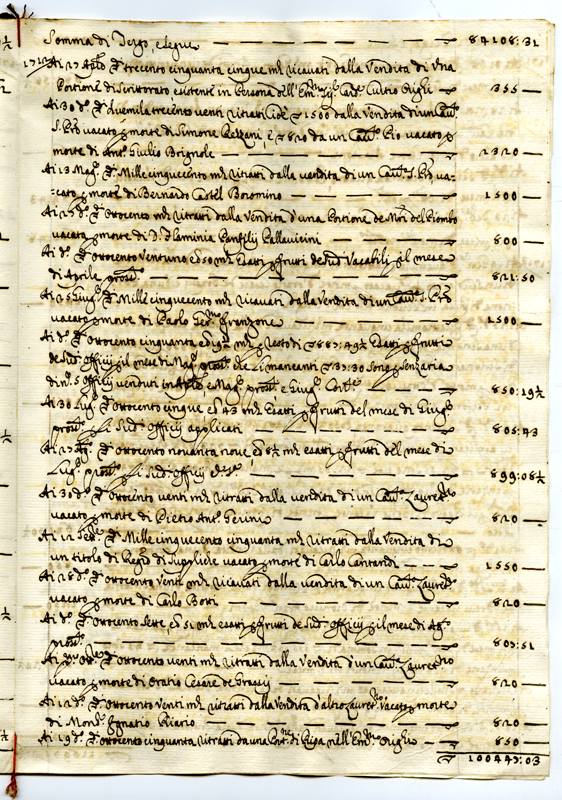 Somma di Tergo, e segue — 84108:31
1712 Ai 27 Aple ▽di trecento cinquanta cinque mta ricavati dalla Vendita di Una
Portione di Scrittorato esistente in Persona dell' Emo Sigr Card. Curtio Orighi — 355 —
Ai 30 do ▽di duemila trecento venti ritratti cioè ▽ 1500 dalla Vendita di un Cavto
S. Pro vacato p morte di Simone Pezzani, e ▽ 820 da un Cavto Pio vacato p
morte di Anto Giulio Brignole — 2320 —
Ai 13 Mago ▽di Mille cinquecento mta ritratti dalla vendita di un Cavto S. Pro va-
cato p morte di Bernardo Castel Boromino — 1500 —
Ai 25 do ▽di ottocento mta ritratti dalla Vendita d'una Portione de Mri del Piombo
vacata p morte di D. Flaminia Panfilij Pallavicini — 800 —
Ai do ▽di ottocento Ventuno e 50 mta esatti p frutti de sudi Vacabili p il mese
di Aprile prosso — 821:50
Ai 25 Giugo ▽di Mille cinquecento mta ricavati dalla Vendita di un Cavto S. Pro
vacato p morte di Paolo Germo Franzone — 1500 —
Ai do ▽di ottocento cinquanta e 19½ mta p resto di ▽ 883:49½ esatti p frutti
de sudi officij p il mese di Mago prosso che li mancanti ▽ 33:30 sono p senzaria
di no 5 officij venduti in Aple, e Mago prosso e Giugo Corte — 850:19½
Ai 30 Lugo ▽di ottocento cinque e 43 mta esatti p frutti del mese di Giugo
prosso p li sudi officij applicati — 805:43
Ai 27 Ago ▽di ottocento novanta nove, e 8½ mta esatti p frutti del mese di
Lugo prosso p li sudi officij — 899:08½
Ai 30 do ▽di ottocento venti mta ritratti dalla vendita di un Cavto Lauretno
vacato p morte di Pietro Anto Gerini — 820 —
Ai 12 7bre ▽di Mille cinquecento cinquanta mta ritratti dalla Vendita di
un titolo di Regro di Suppliche vacato p morte di Carlo Cantardi — 1550
Ai 28 do ▽di ottocento Venti mta ricavati dalla vendita di un Cavto Lauretno
vacato p morte di Carlo Botti — 820 —
Ai do ▽di ottocento sette, e 51 mta esatti p frutti de sudi officij p il mese di Ago
prosso — 807:51
Ai 7 8bre ▽di ottocento venti mta ritratti dalla Vendita d'un Cavto Lauretno
vacato p morte di Oratio Cesare de Grassij — 820 —
Ai 12 do ▽di ottocento Venti mta ritratti dalla Vendita d'altro Lauretno Vacato p morte
di Monsr Ignatio Riario — 820 —
Ai 19 do ▽di ottocento cinquanta ritratti da una Portne di Ripa nell'Emo Orighi — 850 —
▽ 100447:03